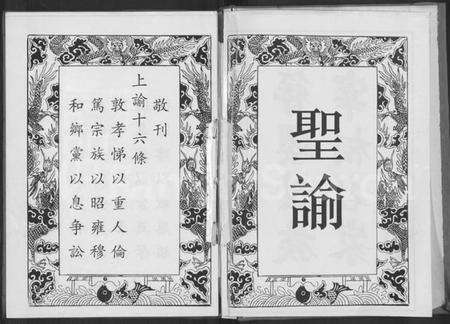 聖諭
敬刊
上諭十六條
敦孝悌以重人倫
篤宗族以昭雍穆
和鄉黨以息爭訟